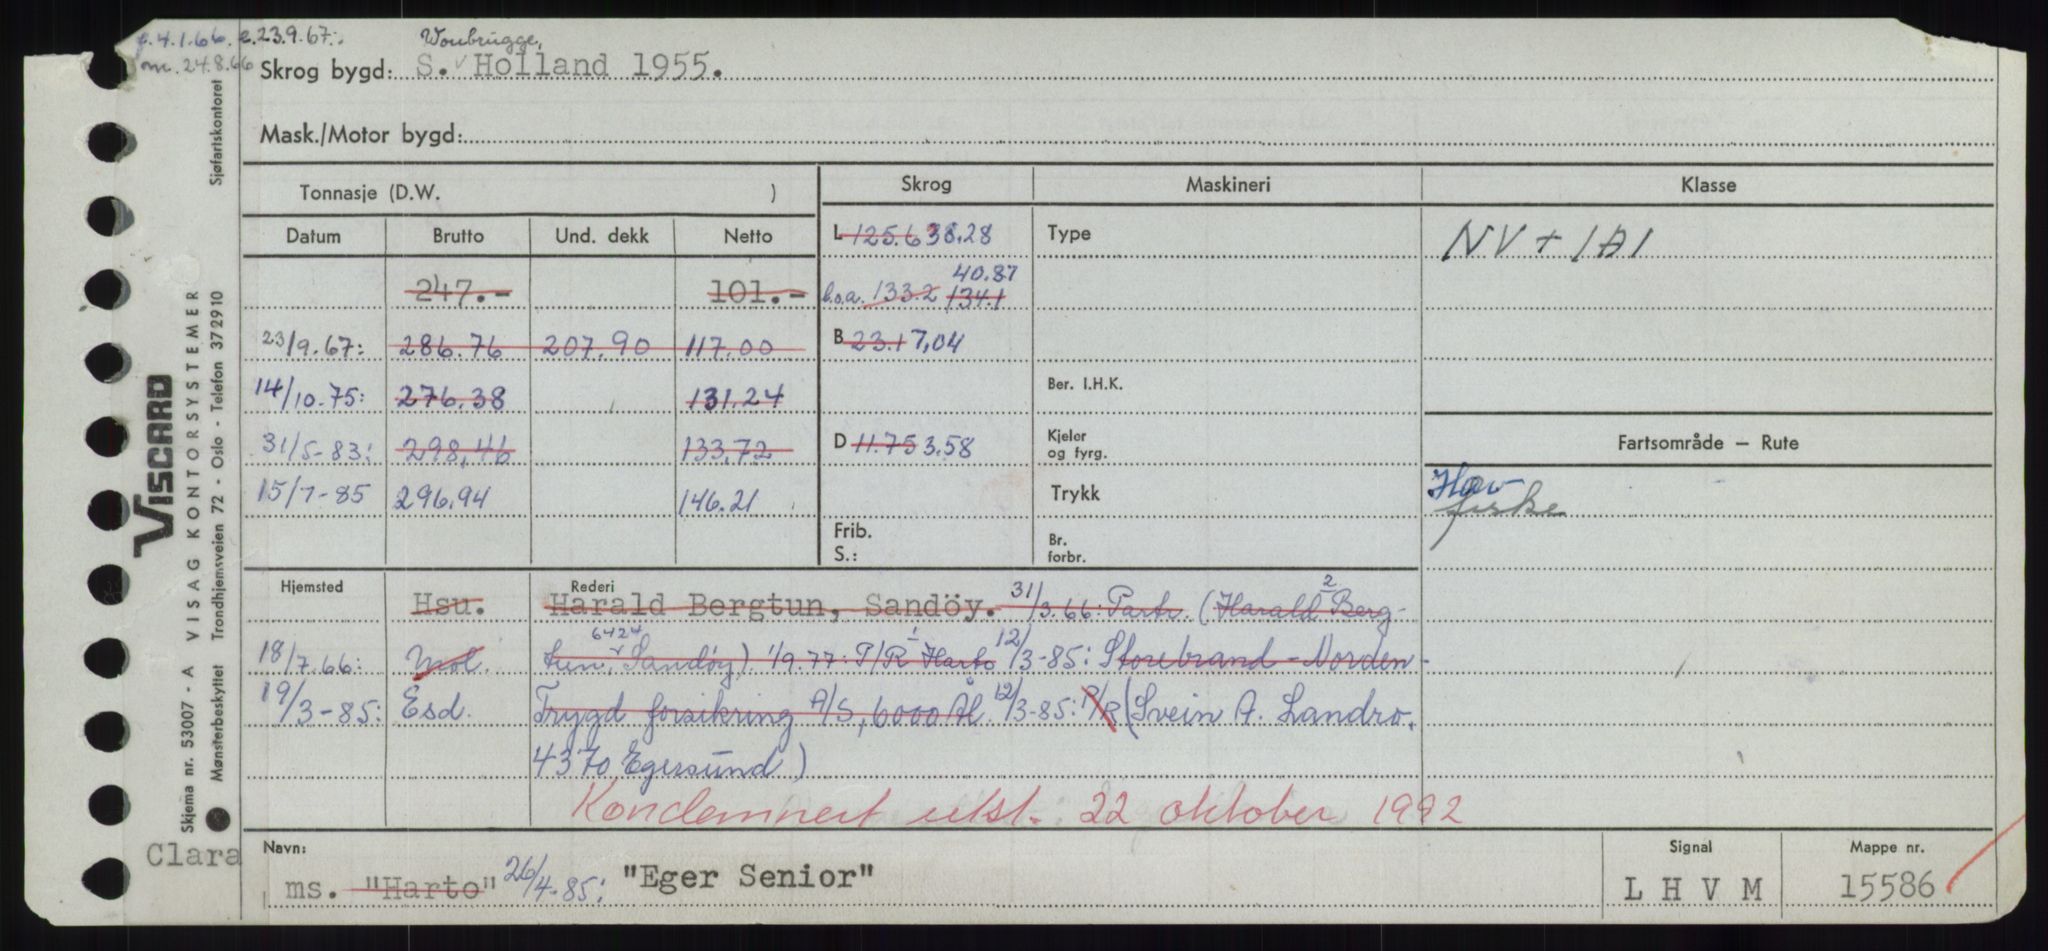 f.4.1.66. e.23.9.67:.
m. 24.8.66
Woubrugge,
Skrog bygd: S. Holland 1955.
Mask./Motor bygd:
Tonnasje (D.W. )
Skrog
Maskineri
Klasse
Datum Brutto Und. dekk Netto
L 125.6 38.28
Type
NV + 1A1
247.- 101.-
40.87
l.o.a. 133.2 134.1
23/9.67: 286.76 207.90 117.00
B 23.1 7,04
14/10-75: 276.38 131,24
Ber. I.H.K.
31/5-83: 298,46 133,72
D 11.75 3.58
Kjeler
og fyrg.
Fartsområde — Rute
15/7-85 296,94 146.21
Trykk
Hav
fiske
Frib.
S.:
Br.
forbr.
Hjemsted
Rederi
Hsu. Harald Bergtun, Sandöy. 31/3.66: Partr. (Harald 2 Berg-
18/7.66: Mol. tun, 6424 Sandöy) 1/9.77: P/R 1 Harto 12/3-85: Storebrand-Norden-
19/3-85: Esd. Trygd forsikring A/S, 6000 Ål. 12/3-85: P/R (Svein A. Landro,
4370 Egersund)
Kondemnert utst. 22 oktober 1992
Clara
Navn:
Signal
Mappe nr.
ms. "Harto" 26/4-85: "Eger Senior"
L H V M
15586
VISCARD
VISAG KONTORSYSTEMER
Skjema nr. 53007 - A
Mønsterbeskyttet Trondhjemsveien 72 - Oslo - Telefon 372910 Sjøfartskontoret